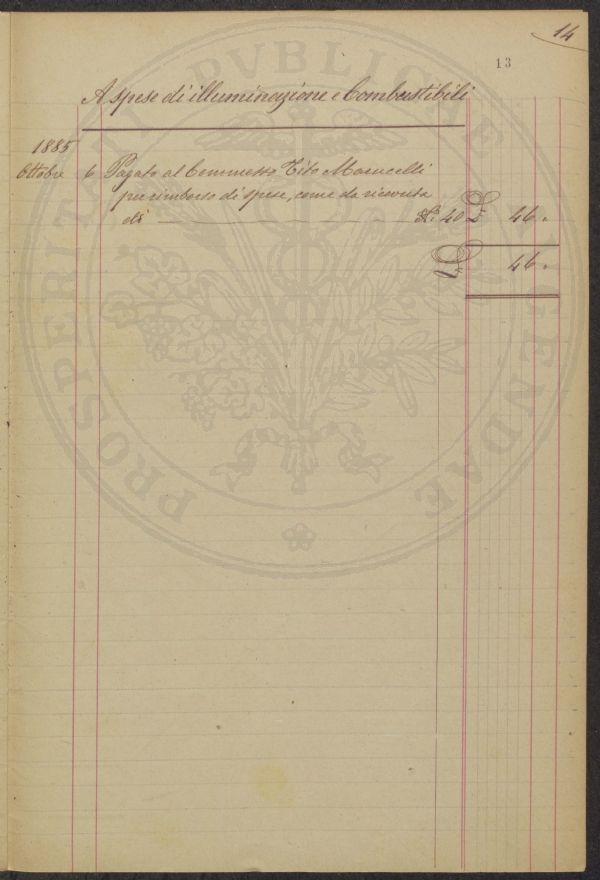 14
13
A spese di illuminazione e Combustibili
1885
Ottobre 6 Pagato al Commesso Tito Marucelli
per rimborso di spese, come da ricevuta
di N.° 40 £ 46 "
£ 46 "
PROSPERITATI PVBLICAE AVGENDAE